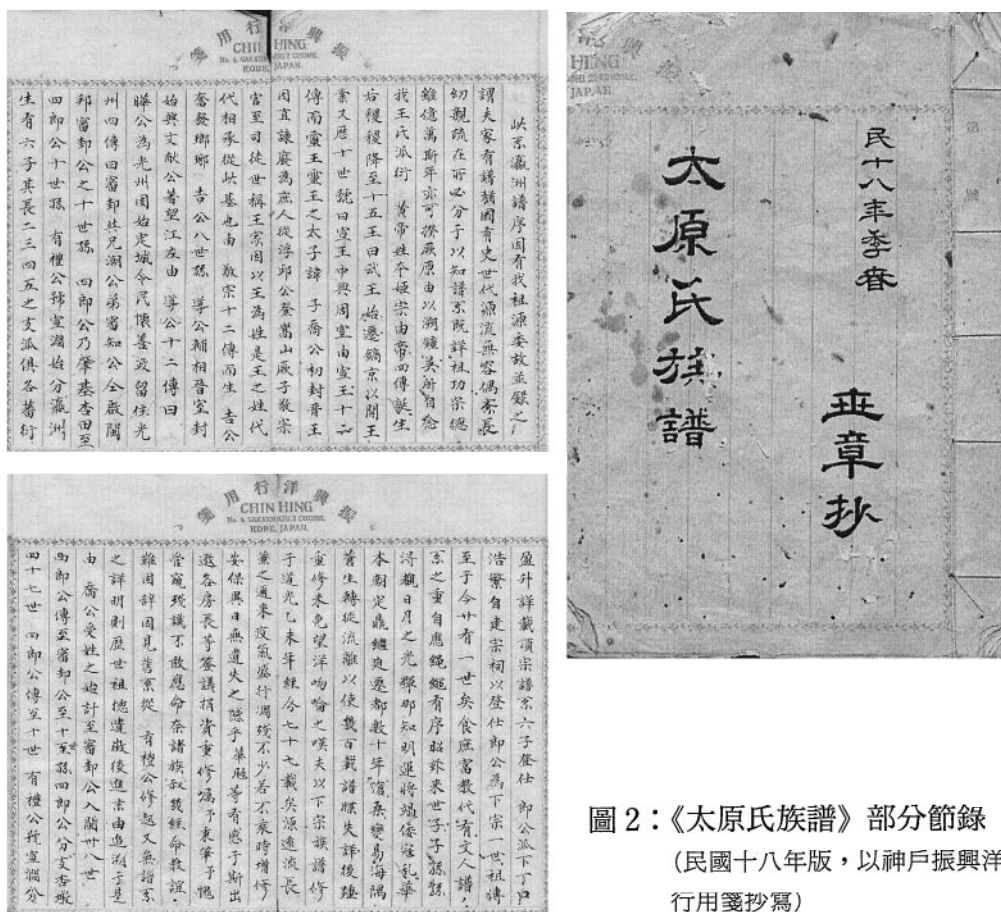 振興洋行用箋
CHIN HING
No. 6, SAKAEMACHI 2 CHOME,
KOBE, JAPAN.
系瀛洲譜序因有我祖源委故並錄之
謂夫家有譜猶國有史世代源流無容紊長
幼親疏在所必分于以知譜系既詳祖功宗德
雖億萬斯年亦可探厥原由以溯鍾英所自稔
我王氏派衍 黃帝姓本姬宗由帝四傳誕生
后稷稷降至十五王曰武王 始遷鎬京以開王
業又歷十世號曰宣王中興周室由宣王十二
傳而靈王靈王之太子諱 子喬公初封晉王
因直諫廢為庶人從浮邱公登嵩山厥子敬宗
官至司徒世稱王家因以王為姓是王之姓代
代相承從此基也由 敬宗十二傳而生 吉公
奮發瑯琊 吉公八世孫 導公輔相晉室封
始興文獻公著望江左由 導公十二傳曰
曄公為光州固始定城令民懷善政留住光
州四傳曰審邽其兄潮公弟審知公仝啟閩
邦審邽公之十世孫 四郎公乃肇基杏田至
四郎公十世孫 有禮公號宣澗始分瀛洲
生有六子其長二三四五之支派俱各蕃衍
振興洋行用箋
CHIN HING
No. 6, SAKAEMACHI 2 CHOME,
KOBE, JAPAN.
盈升詳載頂宗譜系六子登仕 郎公派下丁口
浩繁自建宗祠以登仕郎公為下宗一世祖傳
至于今廿有一世矣食庶富教代有文人譜
系之重自應繩繩有序昭來世子子孫孫
得觀日月之光輝那知明運將竭倭寇乱華
本朝定鼎繼迎遷都數十年滄桑變易海隅
蒼生轉從流離以使幾百載譜牒失詳後雖
重修未免望洋之嘆夫以下宗族譜修
于道光乙未年經今七十七載矣源遠流長
兼之邇來疫氣盛行凋殘不少若不衰時增修
安保異日無遺失之乎華等有感于斯出
邀各房長等簽議捐資重修囑予秉筆予愧
管窺殘識不敢應命奈諸族叔幾經命教誼
難固辭因見舊系從 有禮公修起又無譜系
之詳明則歷世祖德遺徽後進末由追溯于是
由 喬公受姓之始計至審邽公入閩卅八世
四郎公傳至審邽公至十世孫四郎公分支杏墩
四十七世 四郎公傳至十世 有禮公號宣澗分
HING
JAPAN
第 號
民十八年季春
太原氏族譜
章抄
圖2：《太原氏族譜》部分節錄
（民國十八年版，以神戶振興洋
行用箋抄寫）